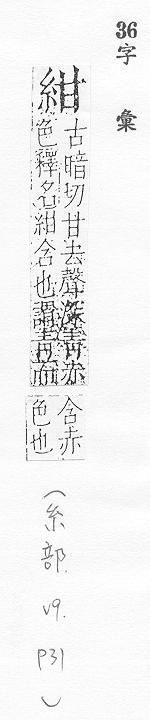 36字彙
紺
古暗切甘去聲深青赤
色釋名紺含也謂青而
含赤
色也
(糸部. v9. P31)